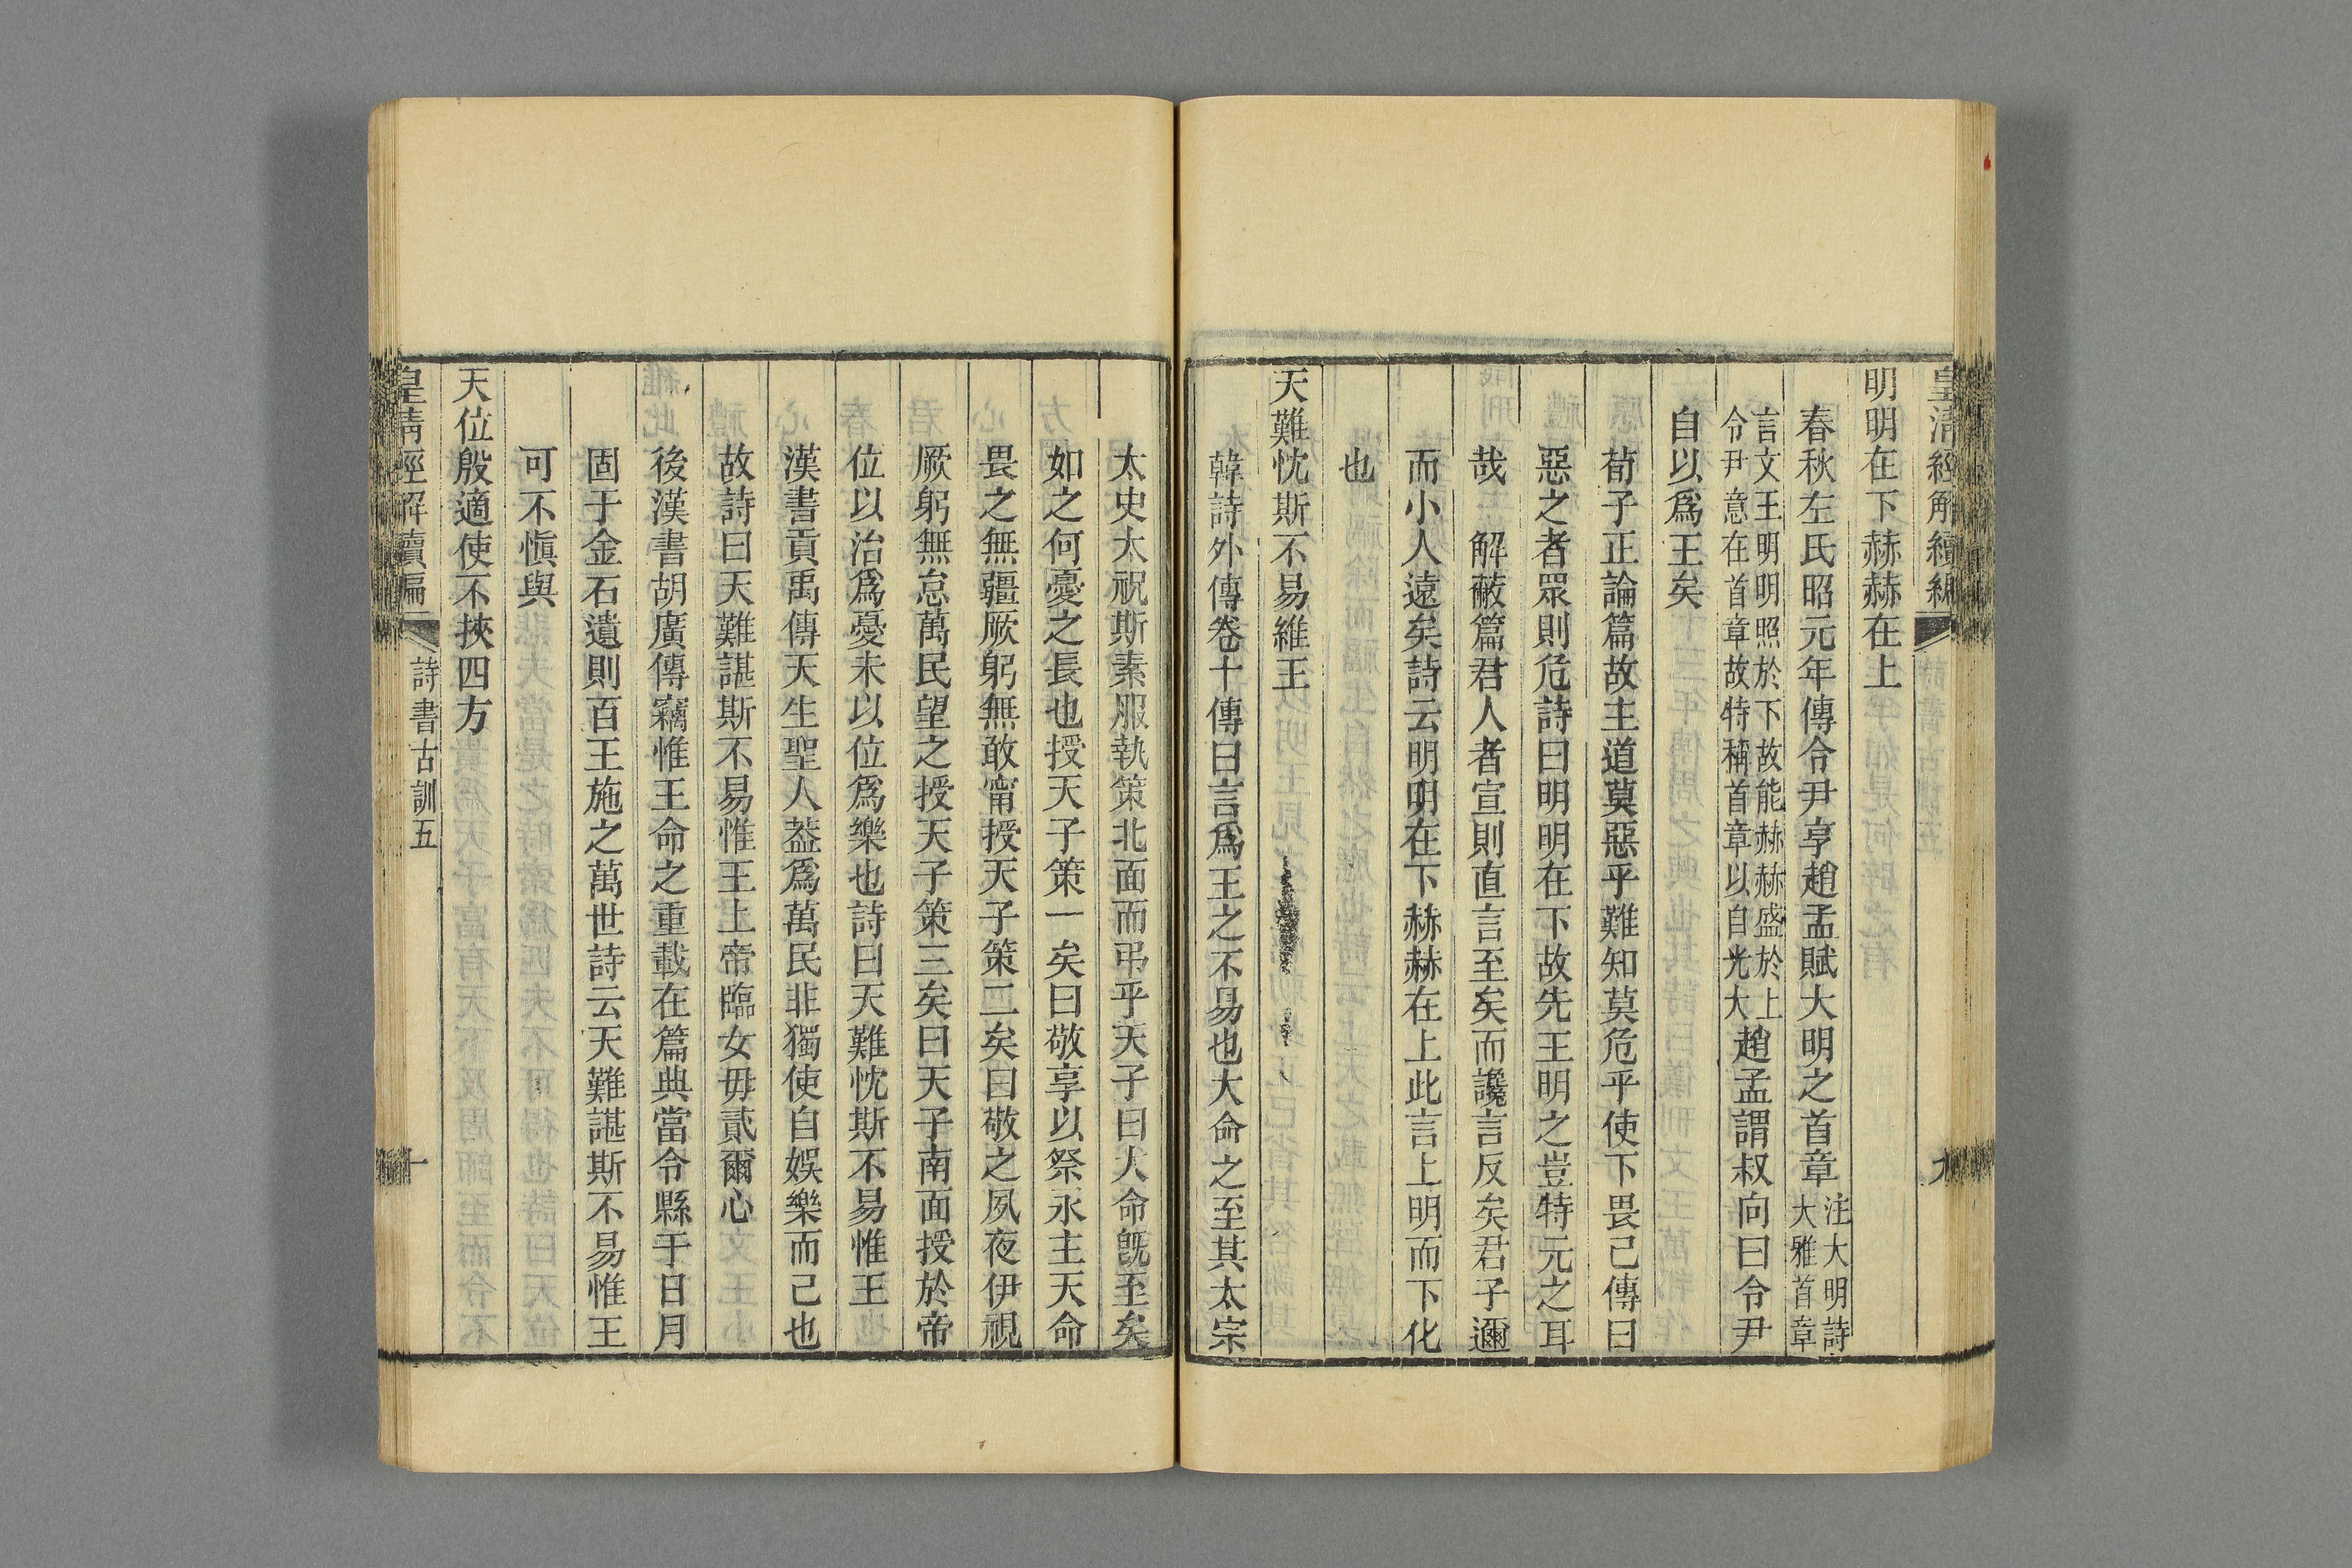 皇清經解續編
九
明明在下赫赫在上
春秋左氏昭元年傳令尹享趙孟賦大明之首章注大明詩大雅首章
言文王明明照於下故能赫赫盛於上令尹意在首章故特稱首章以自光大趙孟謂叔向曰令尹
自以爲王矣
荀子正論篇故主道莫惡乎難知莫危乎使下畏己傳曰
惡之者眾則危詩曰明明在下故先王明之豈特元之耳
哉　解蔽篇君人者宣則直言至矣而讒言反矣君子邇
而小人遠矣詩云明明在下赫赫在上此言上明而下化
也
天難忱斯不易維王
韓詩外傳卷十傳曰言爲王之不易也大命之至其太宗
太史太祝斯素服執策北面而弔乎天子曰大命旣至矣
如之何憂之長也授天子策一矣曰敬享以祭永主天命
畏之無疆厥躬無敢甯授天子策二矣曰敬之夙夜伊視
厥躬無怠萬民望之授天子策三矣曰天子南面授於帝
位以治爲憂未以位爲樂也詩曰天難忱斯不易惟王
漢書貢禹傳天生聖人葢爲萬民非獨使自娛樂而己也
故詩曰天難諶斯不易惟王上帝臨女毋貳爾心
後漢書胡廣傳竊惟王命之重載在篇典當令縣于日月
固于金石遺則百王施之萬世詩云天難諶斯不易惟王
可不愼與
天位殷適使不挾四方
皇清經解續編
詩書古訓五
十